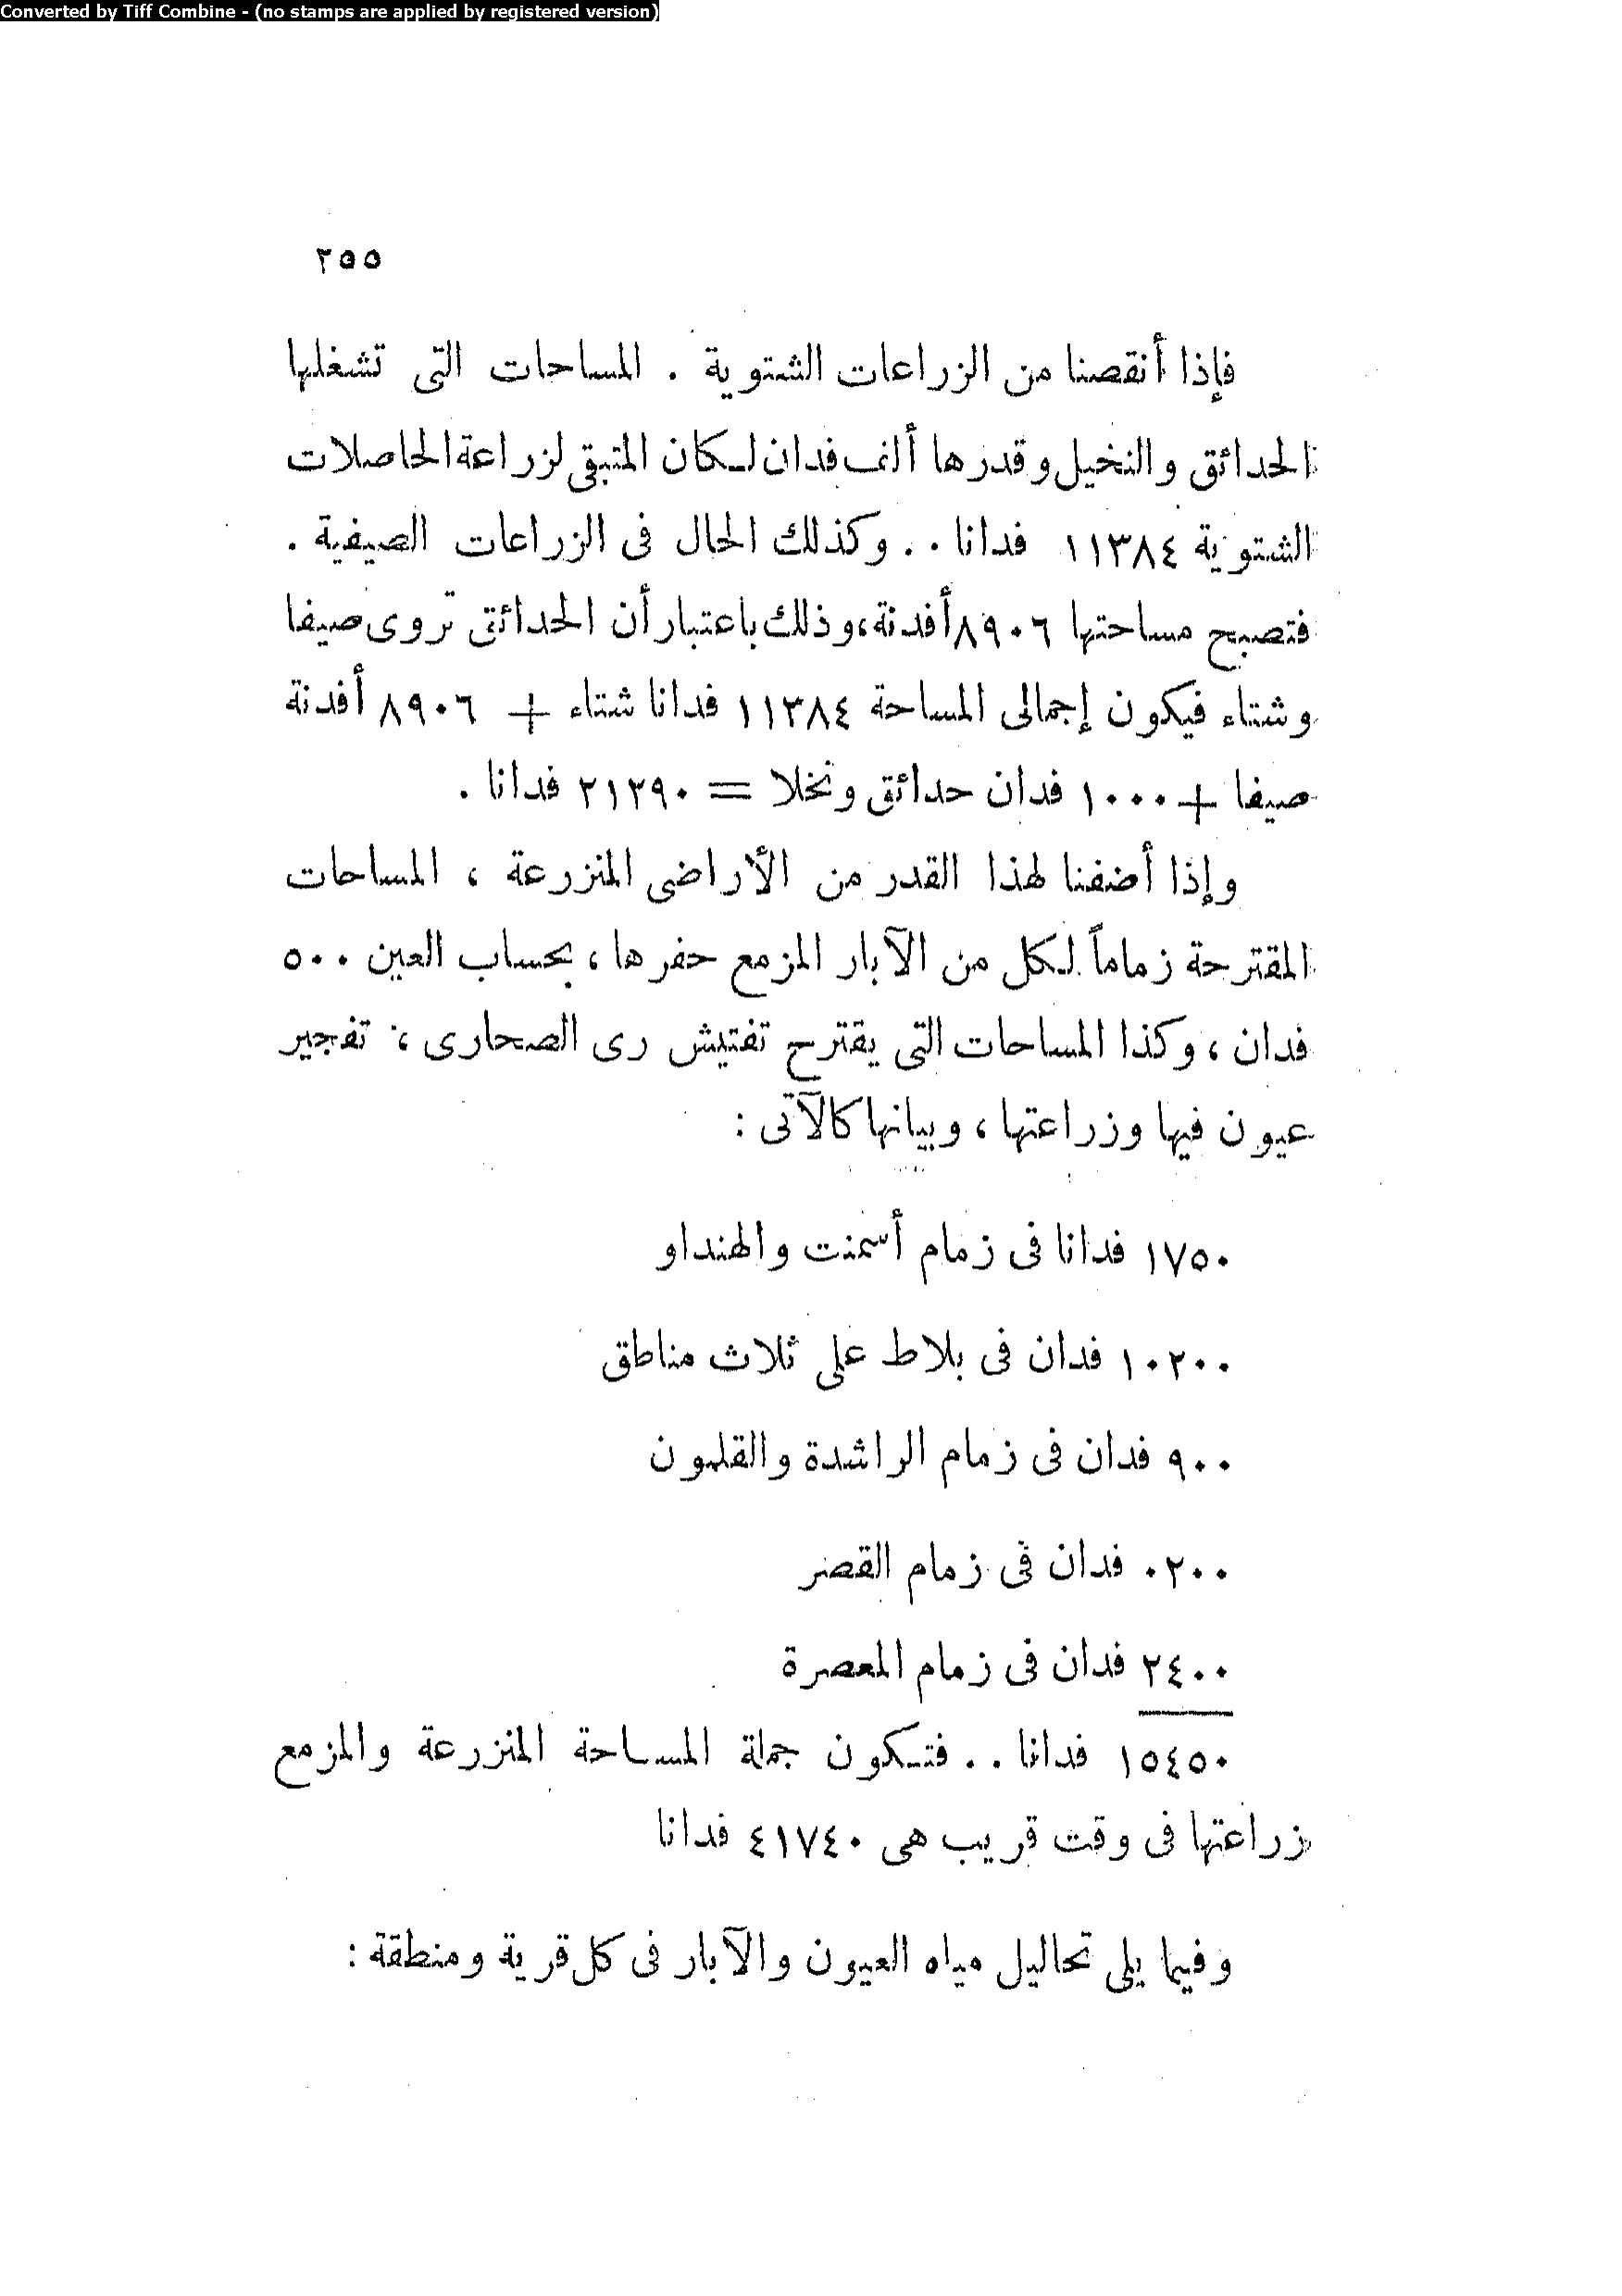 Converted by Tiff Combine - (no stamps are applied by registered version)
٢٥٥
فإذا أنقصنا من الزراعات الشتوية . المساحات التى تشغلها
الحدائق والنخيل وقدرها ألف فدان لكان المتبقى لزراعة الحاصلات
الشتوية ١١٣٨٤ فدانا . . وكذلك الحال فى الزراعات الصيفية .
فتصبح مساحتها ٨٩٠٦ أفدنة، وذلك باعتبار أن الحدائق تروى صيفا
وشتاء فيكون إجمالى المساحة ١١٣٨٤ فدانا شتاء + ٨٩٠٦ أفدنة
صيفا + ١٠٠٠ فدان حدائق ونخلا = ٢١٢٩٠ فدانا .
وإذا أضفنا لهذا القدر من الأراضى المنزرعة ، المساحات
المقترحة زماماً لكل من الآبار المزمع حفرها ، بحساب العين ٥٠٠
فدان ، وكذا المساحات التى يقترح تفتيش رى الصحارى ، تفجير
عيون فيها وزراعتها ، وبيانها كالآتى :
١٧٥٠ فدانا فى زمام أسمنت والهنداو
١٠٢٠٠ فدان فى بلاط على ثلاث مناطق
٩٠٠ فدان فى زمام الراشدة والقلمون
٠٢٠٠ فدان فى زمام القصر
٢٤٠٠ فدان فى زمام المعصرة
١٥٤٥٠ فدانا . . فتكون جملة المساحة المنزرعة والمزمع
زراعتها فى وقت قريب هى ٤١٧٤٠ فدانا
وفيما يلى تحاليل مياه العيون والآبار فى كل قرية ومنطقة :